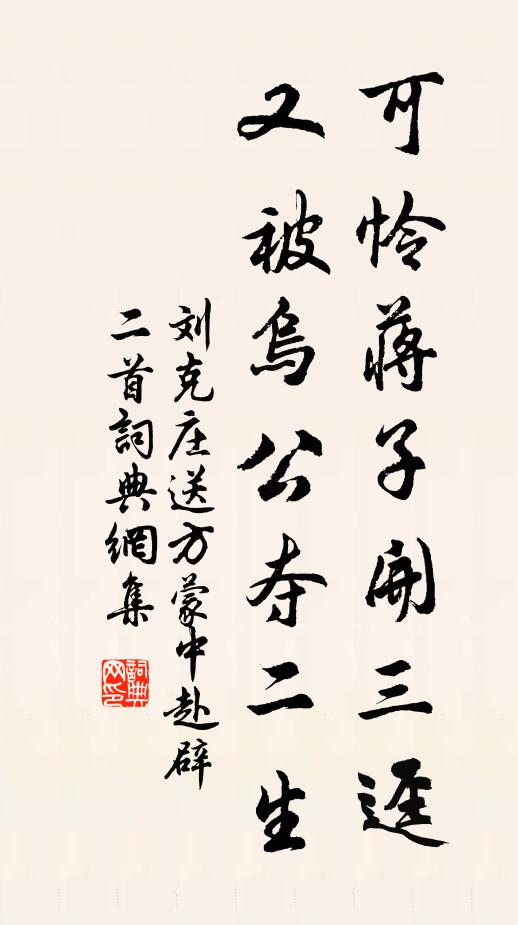 可怜蒋子開三逕
又被烏公夺二生
刘克庄送方蒙中赴辟
二首詞典網集
詞典网印